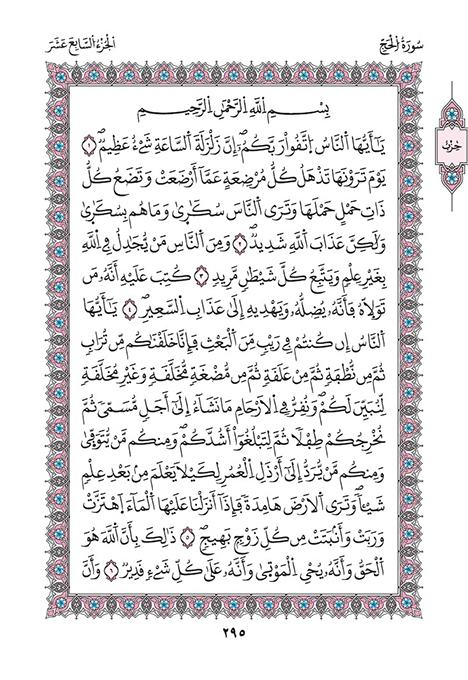 سُورَةُ الْحَجّ
الجُزْءُ السَّابِعَ عَشَرَ
بِسْمِ اِللَّهِ اِلرَّحْمَٰنِ اِلرَّحِيمِ
يَٰأَيُّهَا اَلنَّاسُ اُتَّقُواْ رَبَّكُمُۥٓ إِنَّ زَلْزَلَةَ اَلسَّاعَةِ شَےْءٌ عَظِيمٌ ١
يَوْمَ تَرَوْنَهَا تَذْهَلُ كُلُّ مُرْضِعَةٍ عَمَّآ أَرْضَعَتْ وَتَضَعُ كُلُّ
ذَاتِ حَمْلٍ حَمْلَهَا وَتَرَى اَلنَّاسَ سُكَٰرَىٰ وَمَا هُم بِسُكَٰرَىٰ
وَلَٰكِنَّ عَذَابَ اَللَّهِ شَدِيدٌ ٢ وَمِنَ اَلنَّاسِ مَنْ يُّجَٰدِلُ فِے اِللَّهِ
بِغَيْرِ عِلْمٍ وَيَتَّبِعُ كُلَّ شَيْطَٰنٍ مَّرِيدٍ ٣ كُتِبَ عَلَيْهِ أَنَّهُۥ مَن
تَوَلَّاهُ فَأَنَّهُۥ يُضِلُّهُۥ وَيَهْدِيهِ إِلَىٰ عَذَابِ اِلسَّعِيرِ ٤ يَٰأَيُّهَا
اَلنَّاسُ إِن كُنتُمْ فِے رَيْبٍ مِّنَ اَلْبَعْثِ فَإِنَّا خَلَقْنَٰكُم مِّن تُرَابٍ
ثُمَّ مِن نُّطْفَةٍ ثُمَّ مِنْ عَلَقَةٍ ثُمَّ مِن مُّضْغَةٍ مُّخَلَّقَةٍ وَغَيْرِ مُخَلَّقَةٍ
لِّنُبَيِّنَ لَكُمْ وَنُقِرُّ فِے اِلَارْحَامِ مَا نَشَآءُ اِلَىٰٓ أَجَلٍ مُّسَمّىٗ ثُمَّ
نُخْرِجُكُمْ طِفْلاً ثُمَّ لِتَبْلُغُوٓاْ أَشُدَّكُمْ وَمِنكُم مَّنْ يُّتَوَفّىٰ
وَمِنكُم مَّنْ يُّرَدُّ إِلَىٰٓ أَرْذَلِ اِلْعُمُرِ لِكَيْلَا يَعْلَمَ مِنۢ بَعْدِ عِلْمٍ
شَيْـٔاً وَتَرَى اَلَارْضَ هَامِدَةً فَإِذَآ أَنزَلْنَا عَلَيْهَا اَلْمَآءَ اَهْتَزَّتْ
وَرَبَتْ وَأَنۢبَتَتْ مِن كُلِّ زَوْجٍ بَهِيجٍ ٥ ذَٰلِكَ بِأَنَّ اَللَّهَ هُوَ
اَلْحَقُّ وَأَنَّهُۥ يُحْيِ اِلْمَوْتَىٰ وَأَنَّهُۥ عَلَىٰ كُلِّ شَےْءٍ قَدِيرٌ ٦ وَأَنَّ
حِزْب
٢٩٥